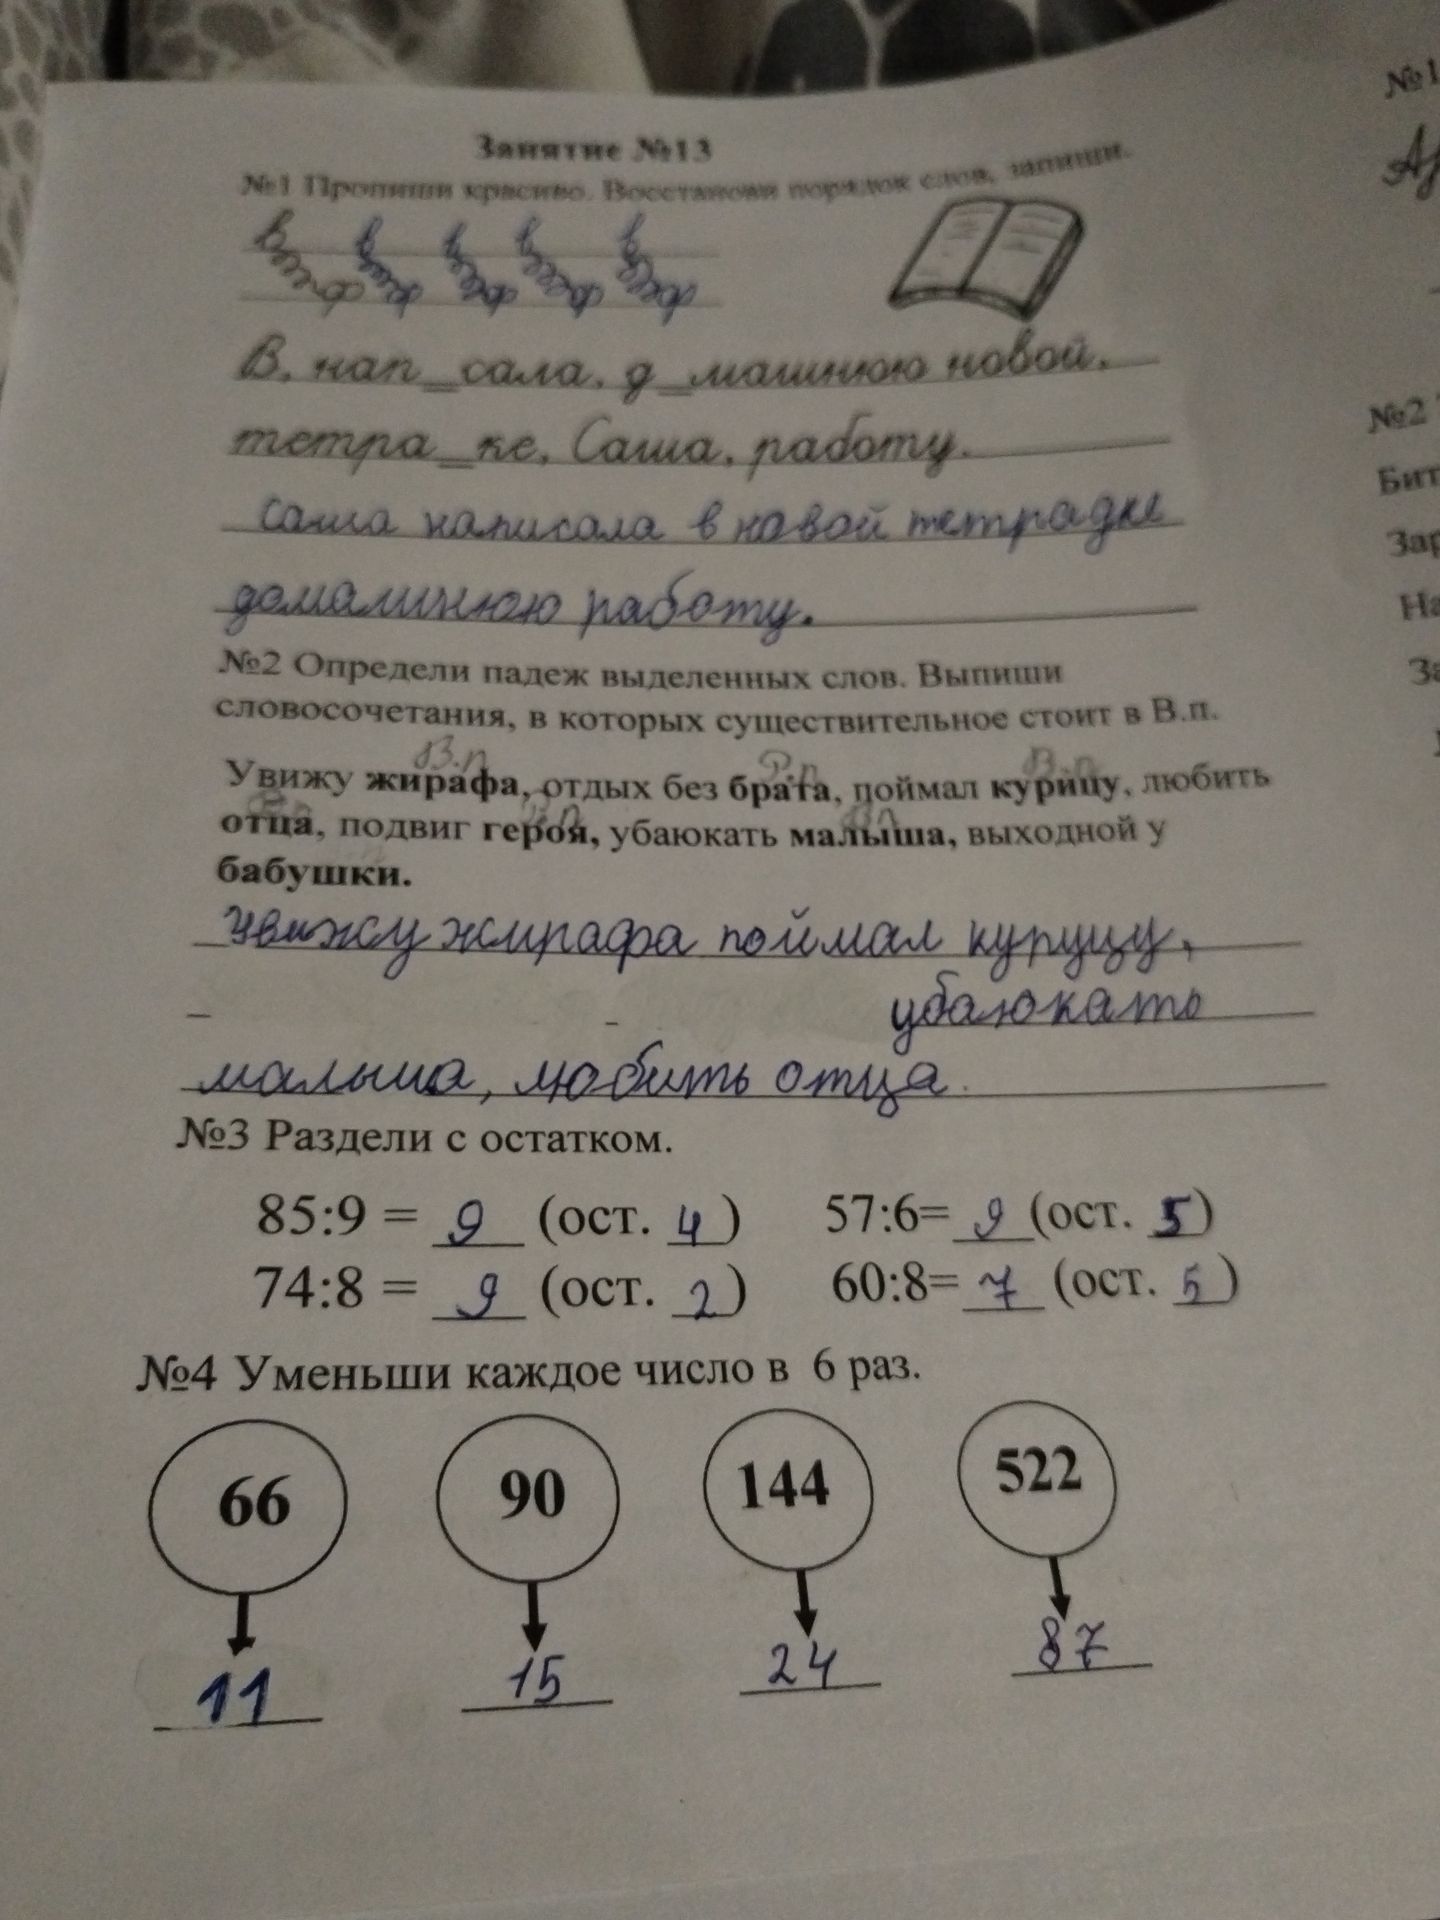 Занятие №13
№1 Пропиши красиво. Восстанови порядок слов, запиши.
В, нап_сала, д_машнюю новой,
тетра_ке, Саша, работу.
саша написала в новой тетрадке
домашнюю работу.
№2 Определи падеж выделенных слов. Выпиши
словосочетания, в которых существительное стоит в В.п.
В.п Р.п В.п
Увижу жирафа, отдых без брата, поймал курицу, любить
отца, подвиг героя, убаюкать малыша, выходной у
бабушки.
увижу жирафа поймал куруцу,
убаюкать
малыша, любить отца.
№3 Раздели с остатком.
85:9 = 9 (ост. 4) 57:6= 9 (ост. 5)
74:8 = 9 (ост. 2) 60:8= 7 (ост. 5)
№4 Уменьши каждое число в 6 раз.
66 90 144 522
11 15 24 87
№1
№2
Бит
Зар
На
За